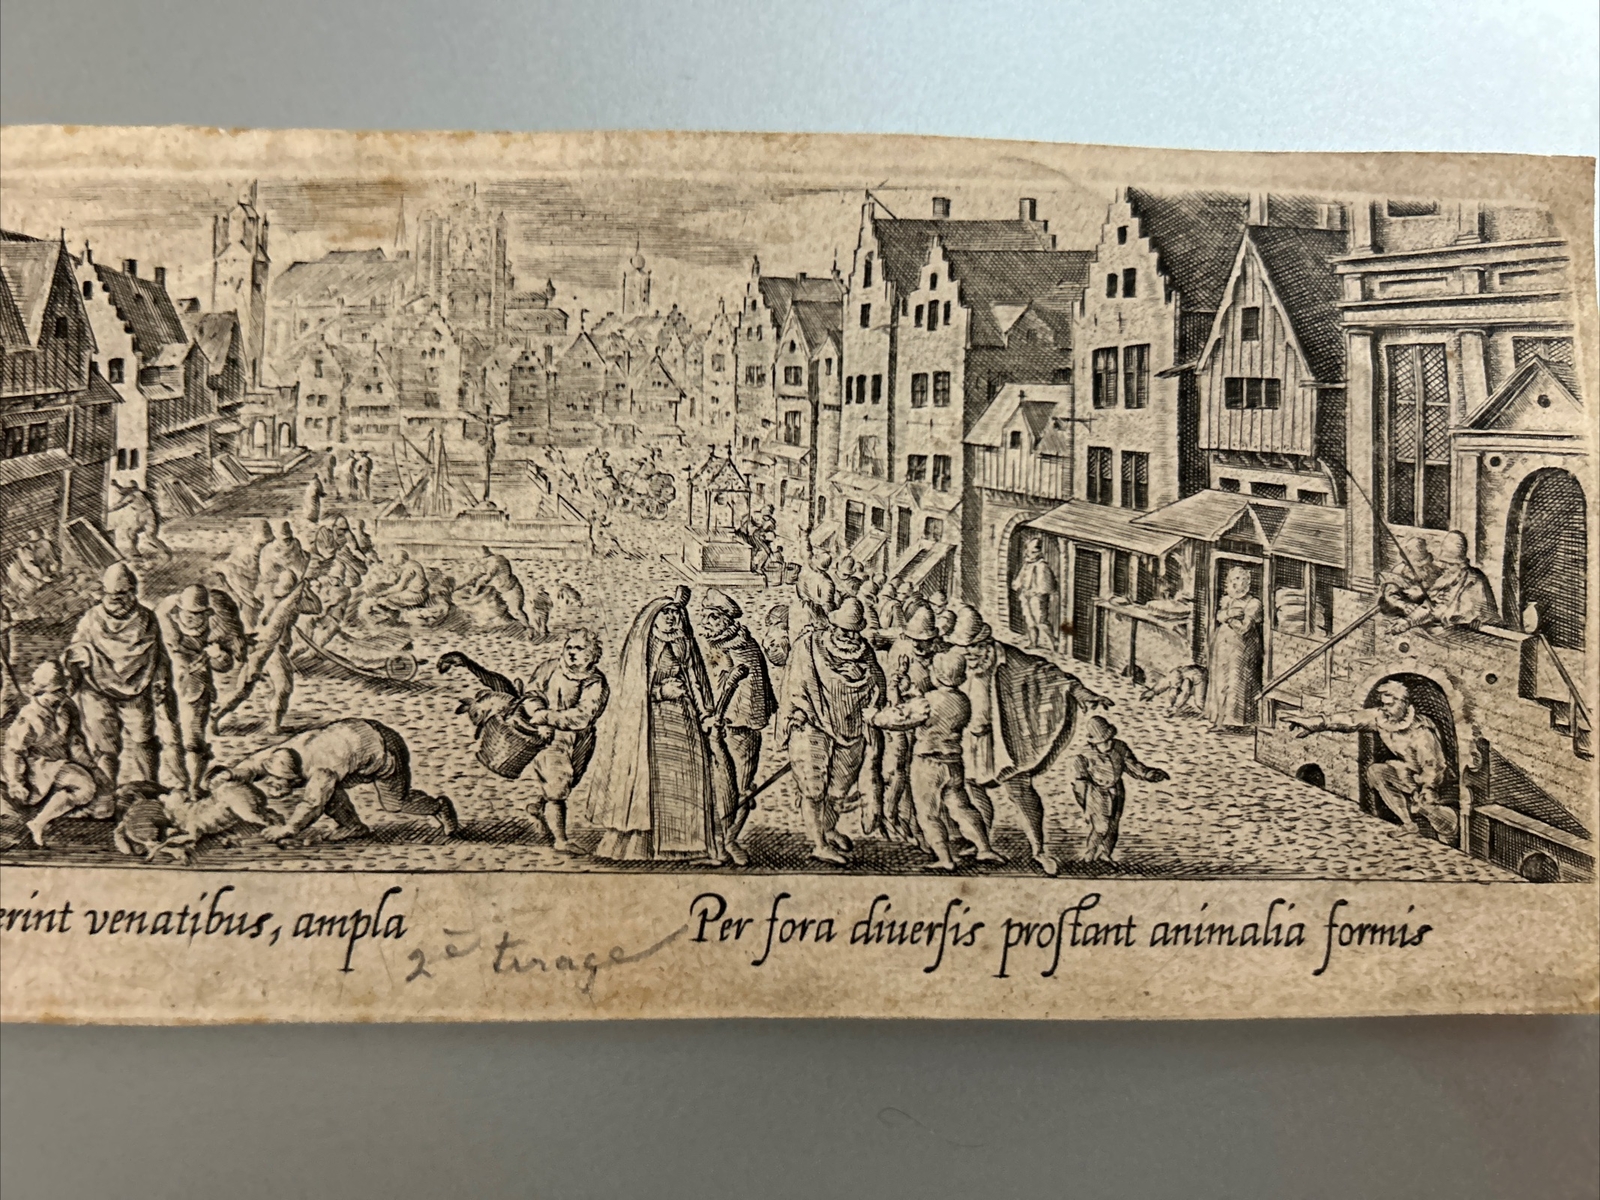 erint venatibus, ampla
Per fora diuerſis proſtant animalia formis
2e tirage